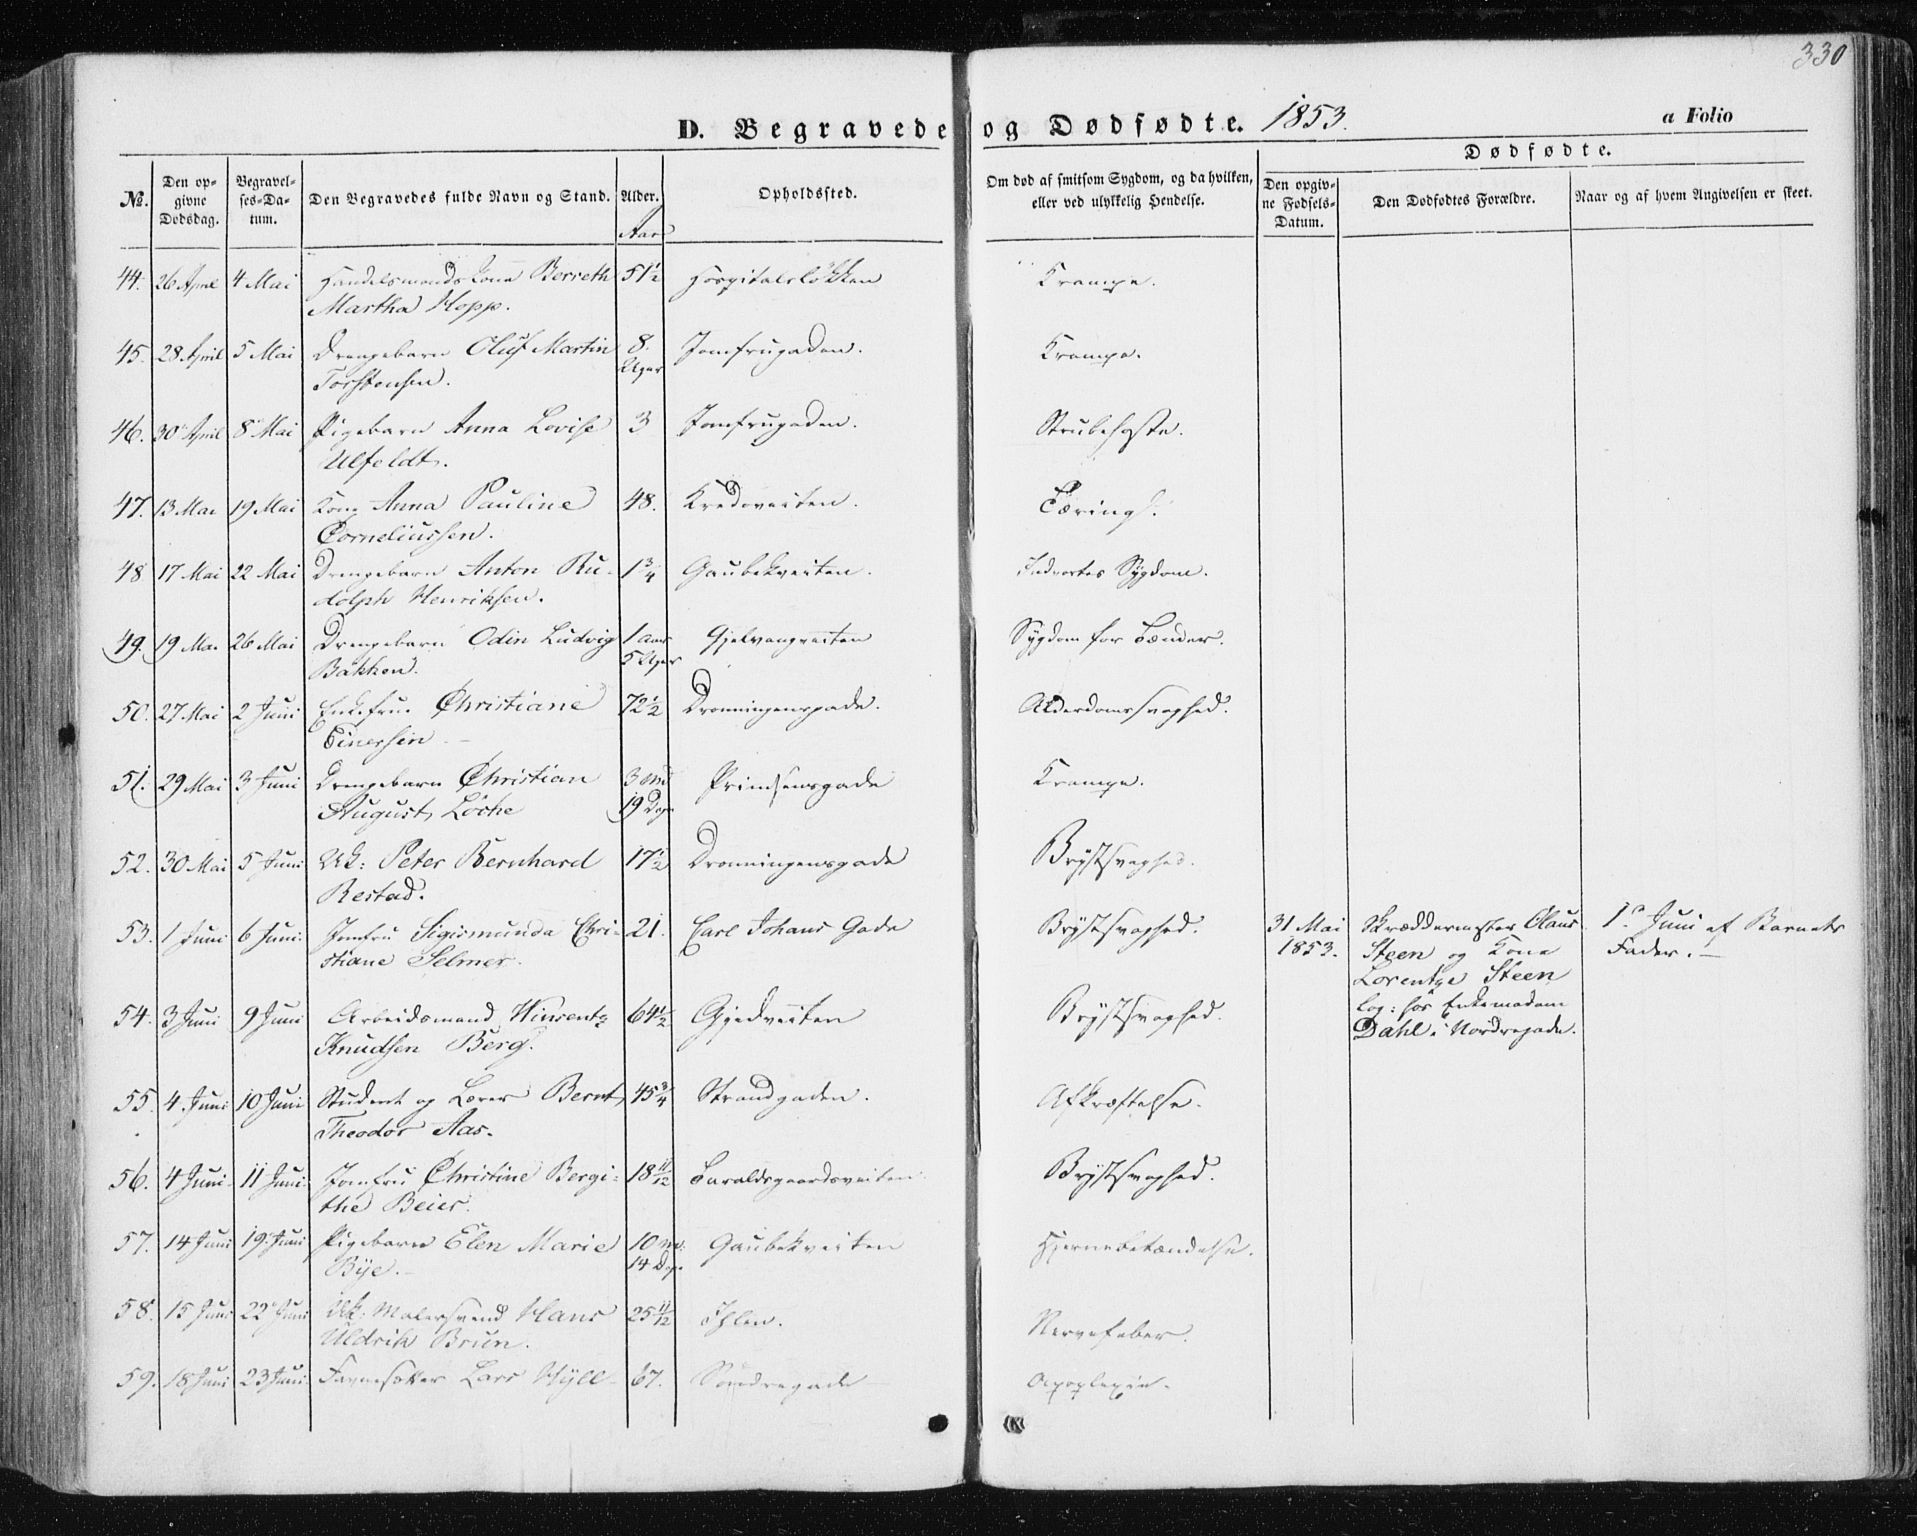 330
D. Begravede og Dødfødte. 1853. a Folio
Dødfødte.
No. Den opgivne Dødsdag. Begravelses-Datum. Den Begravedes fulde Navn og Stand. Alder. Opholdssted. Om død af smitsom Sygdom, og da hvilken, eller ved ulykkelig Hendelse. Den opgivne Fødsels-Datum. Den Dødfødtes Forældre. Naar og af hvem Angivelsen er skeet.
Aar
44. 26 April 4 Mai Handelsmandskone Berreth 51 1/2 Hospitalsløkken Krampe.
Martha Hopp.
45. 28 April 5 Mai Drengebarn Oluf Martin 8. Jomfrugaden. Krampe.
Torstensen. Uger
46. 30 April 8 Mai Pigebarn Anna Lovise 3 Jomfrugaden. Strubehoste.
Ulfeldt.
47. 13 Mai 19 Mai Kone Anna Pauline 48. Kredoveiten. Tæring.
Corneliussen.
48 17 Mai 22 Mai Drengebarn Anton Ru- 1 3/4 Gaubekveiten. Indvortes Sygdom.
dolph Henriksen.
49. 19 Mai 26 Mai Drengebarn Odin Ludvig 1 Aar Gjelvangveiten Sygdom for Tænder.
Bakken. 5 Uger
50. 27 Mai 2 Juni Enkefrue Christiane 72 1/2 Dronningensgade. Alderdomssvaghed.
Einersen
51. 29 Mai 3 Juni Drengebarn Christian 3 Md Prindsensgade Krampe.
August Löche 19 Dage
52. 30 Mai 5 Juni Uk: Peter Bernhard 17 1/2 Dronningensgade Brystsvaghed.
Restad.
53. 1 Juni 6 Juni Jomfru Sigismunda Chri- 21. Carl Johans Gade Brystsvaghed. 31 Mai Skræddermester Olaus 1ste Juni af Barnets
stiane Selmer. 1853. Steen og Kone Fader.
Lorentze Steen
54. 3 Juni 9 Juni Arbeidsmand Winsentz 64 1/2 Gjedveiten Brystsvaghed. log: hos Enkemadam
Knudsen Berg. Dahl i Nordregade.
55. 4 Juni 10 Juni Student og Lærer Bernt 45 3/4 Strandgaden. Afkræftelse.
Theodor Aas.
56. 4 Juni 11 Juni Jomfru Christine Bergi- 18 11/12 Taraldsgaardsveiten Brystsvaghed.
the Beier.
57. 14 Juni 19 Juni Pigebarn Elen Marie 10 Md: Gaubekveiten Hjernebetændelse.
Bye. 14 Dg.
58. 15 Juni 22 Juni Uk: Malersvend Hans 25 11/12 Ihlen. Nervefeber.
Uldrik Brun.
59. 18 Juni 23 Juni Favnesætter Lars Hyll 67. Søndregade Apoplexie.